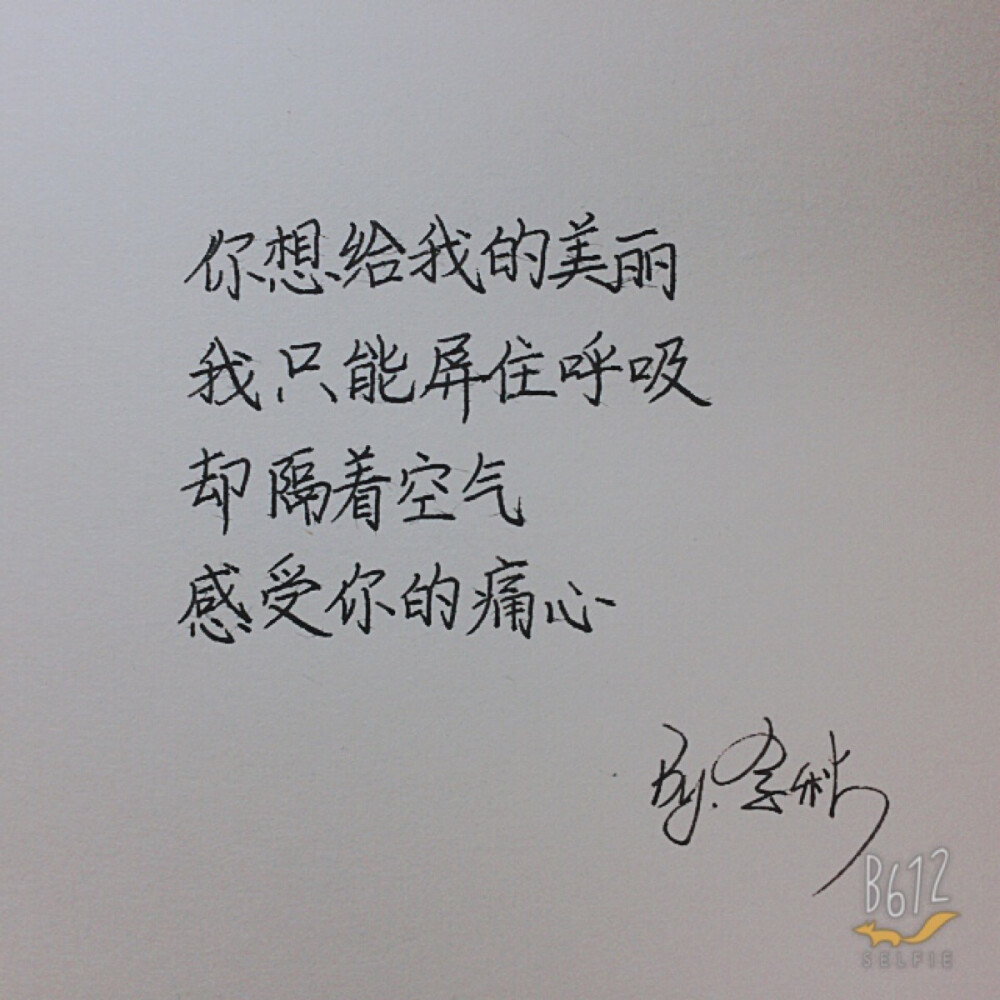 你想给我的美丽
我只能屏住呼吸
却隔着空气
感受你的痛心
By.李
B612
SELFIE